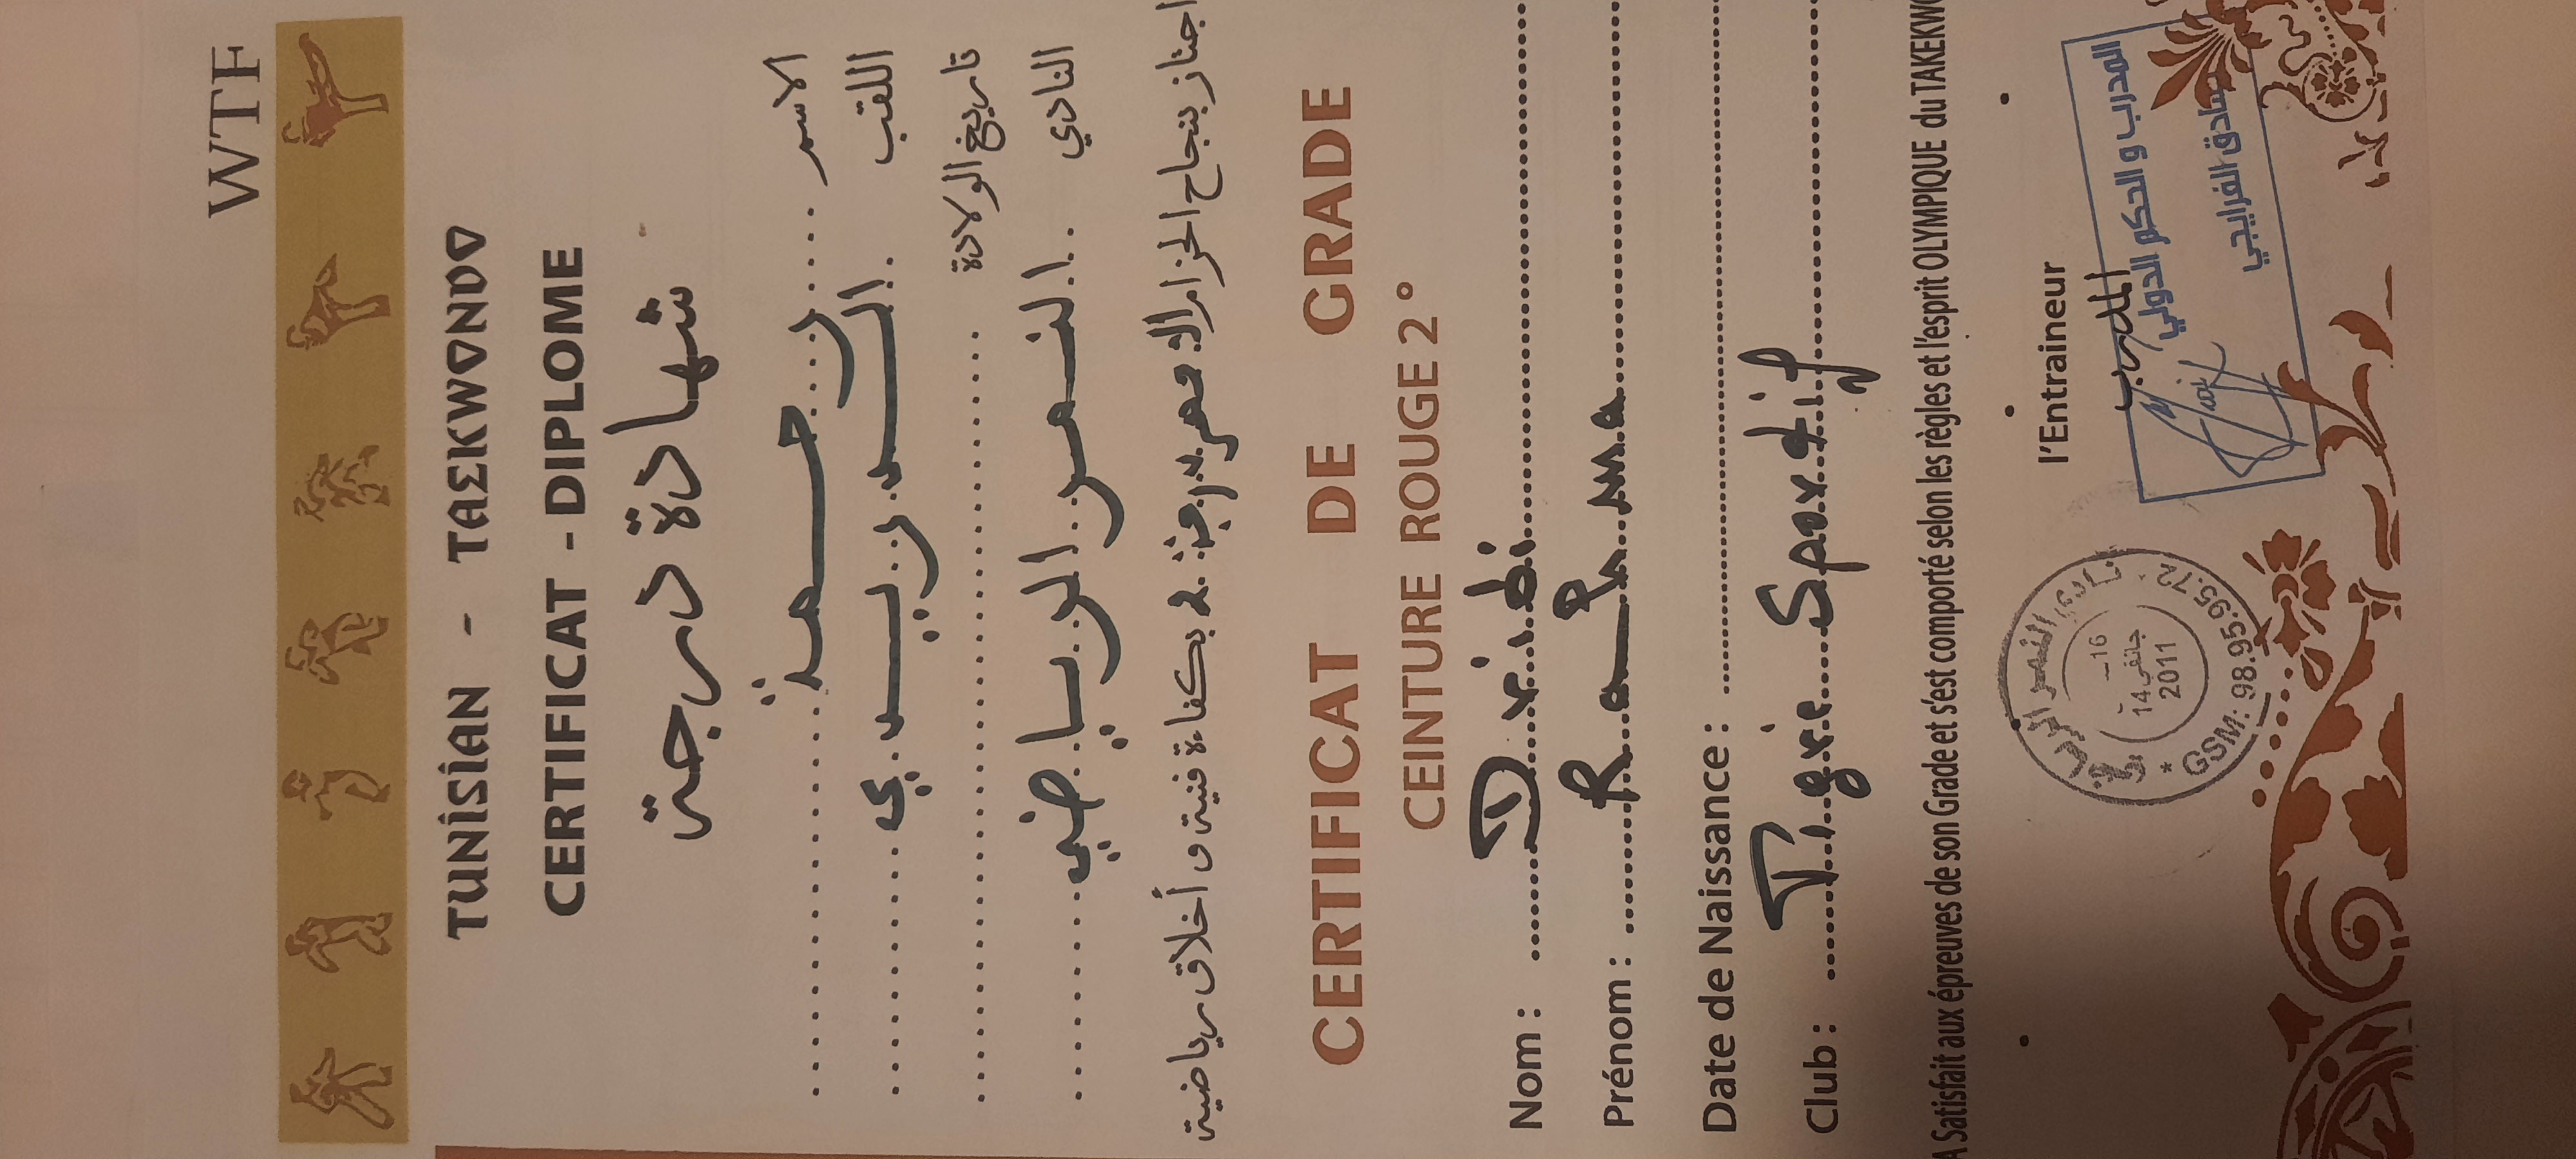 WTF
TUNISIAN - TAEKWONDO
CERTIFICAT - DIPLOME
شهادة درجة
الاسم رحمة
اللقب الدريدي
تاريخ الولادة
النادي النمر الرياضي
اجتاز بنجاح الحزام الاحمر درجة 2 بكفاءة فنية و أخلاق رياضية
CERTIFICAT DE GRADE
CEINTURE ROUGE 2 °
Nom : Dridi
Prénom : Rahma
Date de Naissance :
Club : Tigre Sportif
A Satisfait aux épreuves de son Grade et s'est comporté selon les règles et l'esprit OLYMPIQUE du TAKEKWO
l'Entraineur
المدرب
المدرب و الحكم الدولي
صادق الفرايجي
نادي النمر الرياضي
16
14 جانفي
2011
* GSM: 98.95.95.72